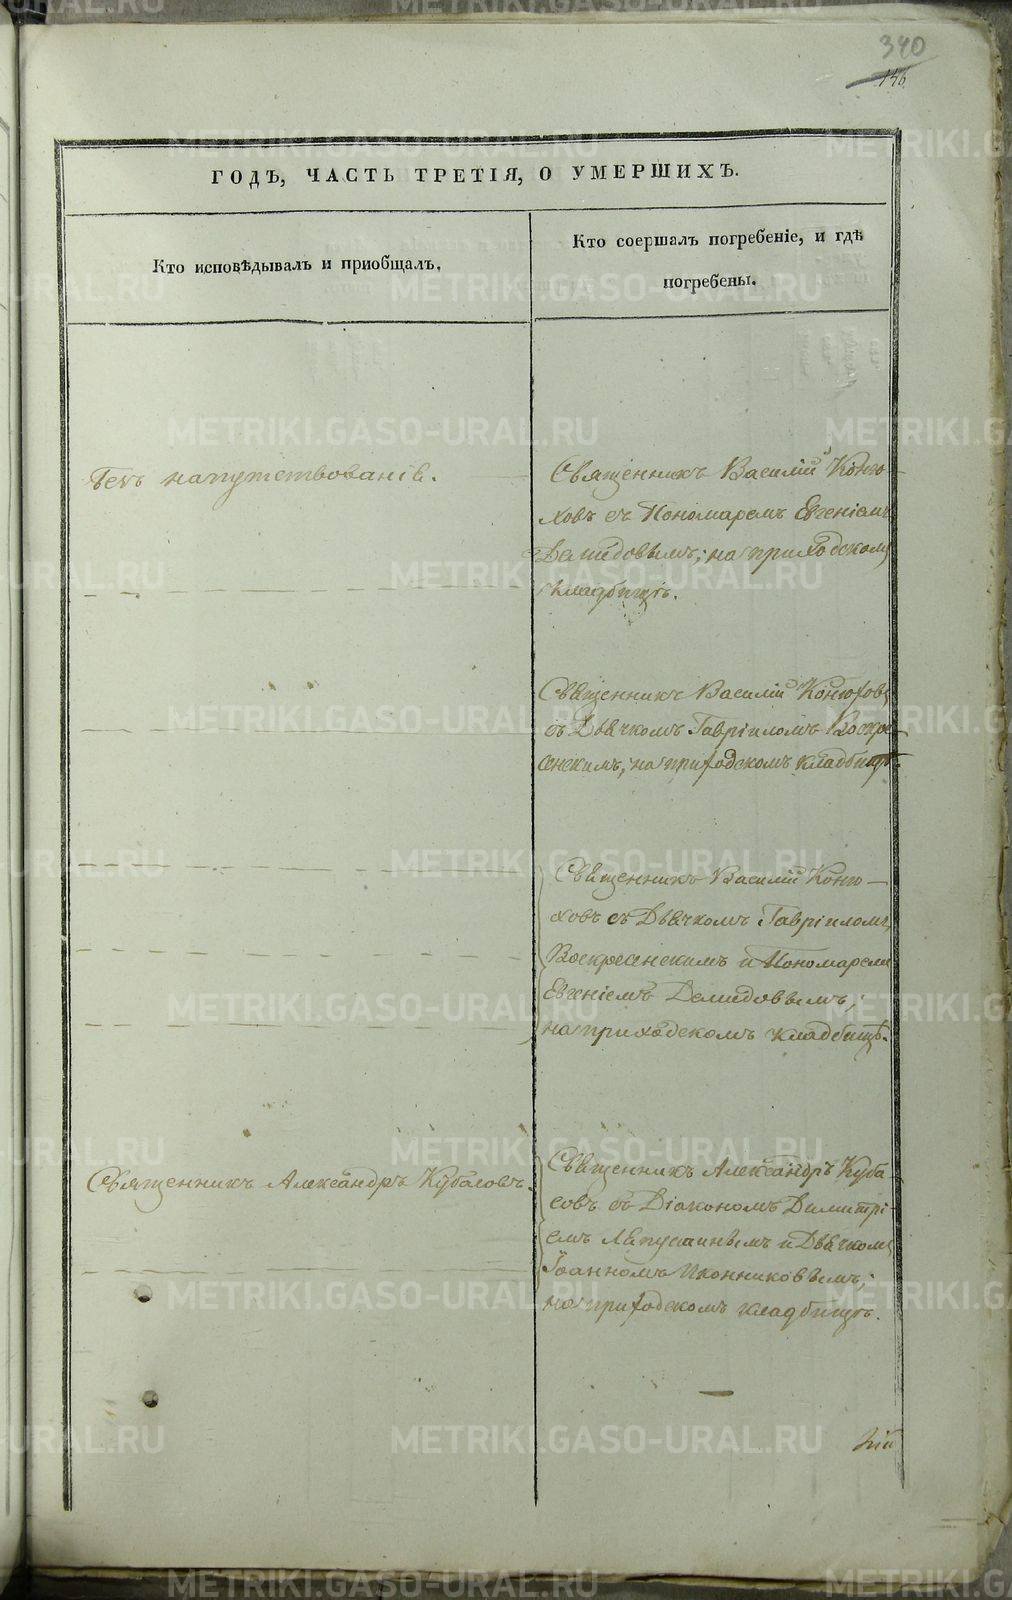 340
146
ГОДЪ, ЧАСТЬ ТРЕТІЯ, О УМЕРШИХЪ.
Кто исповѣдывалъ и приобщалъ.
Кто соершалъ погребеніе, и гдѣ
погребены.
Безъ напутствованія.
Священникъ Василій Коню-
ховъ съ Пономаремъ Евгеніемъ
Демидовымъ; на приходскомъ
кладбищѣ.
Священникъ Василій Конюховъ
съ Дьячкомъ Гавріиломъ Воскре-
сенскимъ, на приходскомъ кладбищѣ.
Священникъ Василій Коню-
ховъ съ Дьячкомъ Гавріиломъ
Воскресенскимъ и Пономаремъ
Евгеніемъ Демидовымъ;
на приходскомъ кладбищѣ.
Священникъ Александръ Кубасовъ.
Священникъ Александръ Куба-
совъ съ Діакономъ Димитрі-
емъ и Дьячкомъ
Іоанномъ Иконниковымъ;
на приходскомъ кладбищѣ.
METRIKI.GASO-URAL.RU